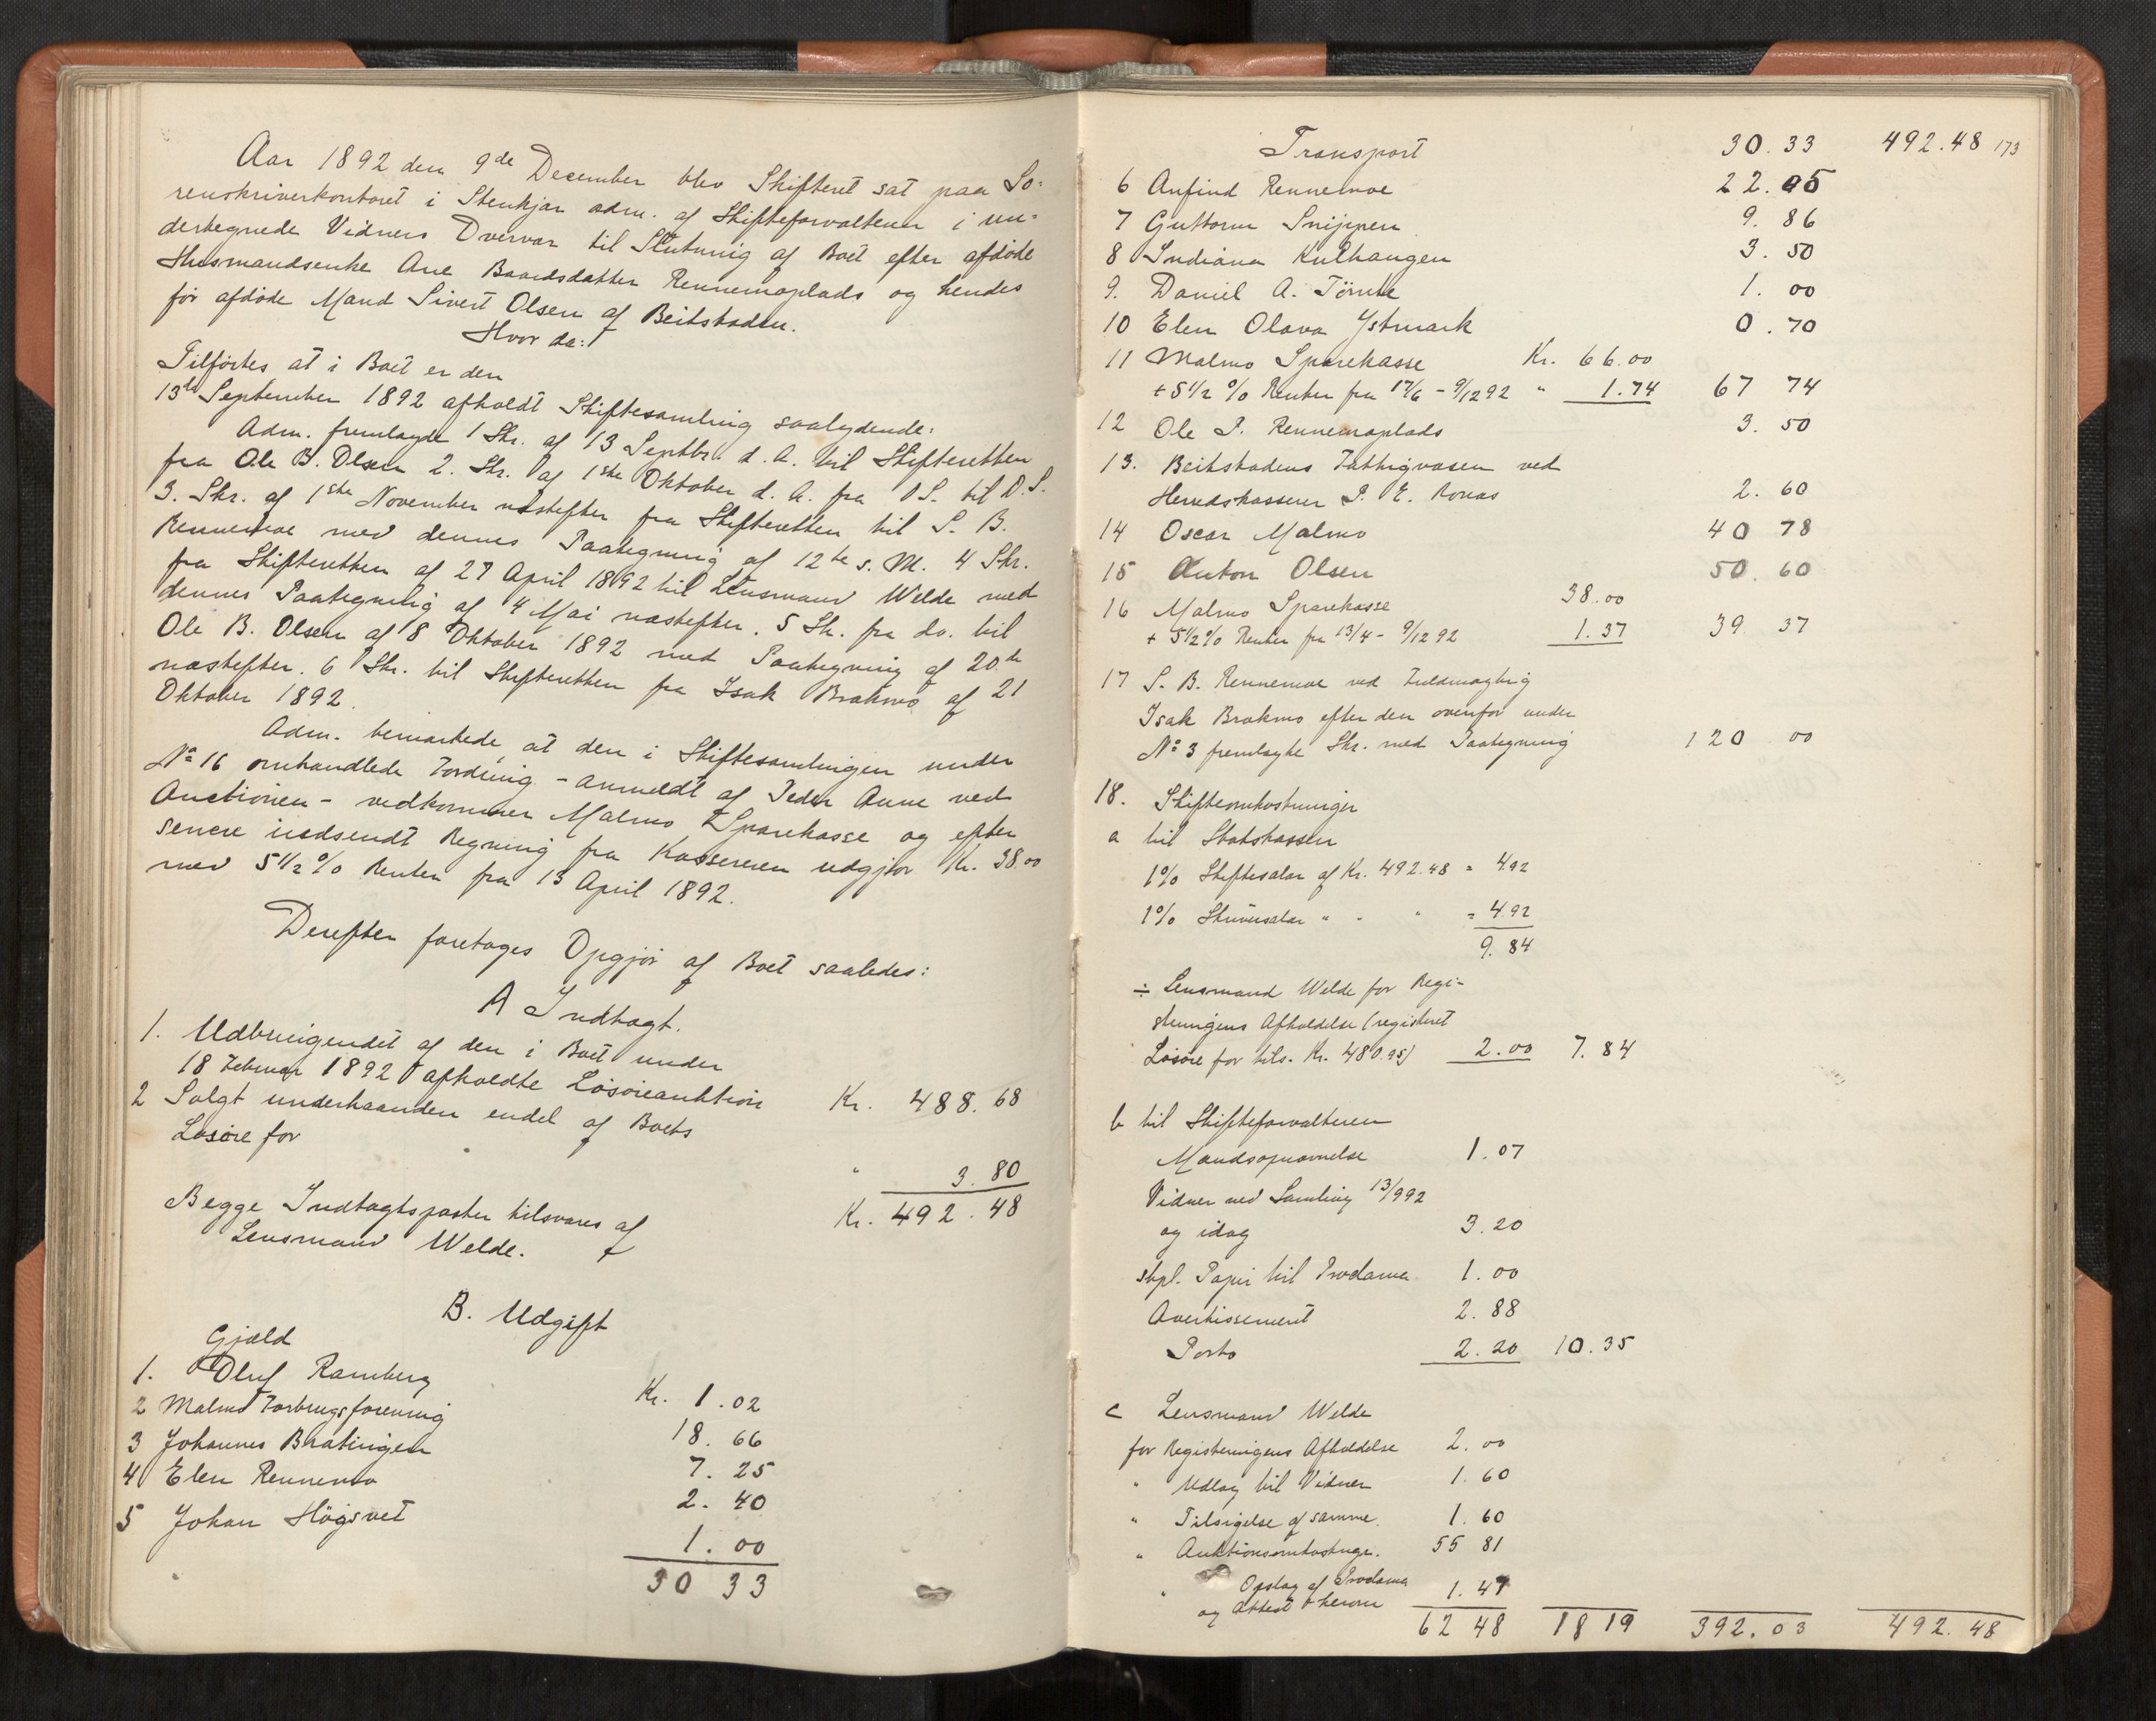 Aar 1892 den 9de December blev Skifteret sat paa So-
renskriverkontoret i Stenkjær adm. af Skifteforvalteren i un-
dertegnede Vidners Overvær til Slutning af Boet efter afdöde
Husmandsenke Ane Baardsdatter Rennemoplads og hendes
för afdöde Mand Sivert Olsen af Beitstaden.
Hvor da:
Tilförtes at i Boet er den
13de September 1892 afholdt Skiftesamling saalydende:
Adm. fremlagde 1 Skr. af 13 Septbr. d. A. til Skifteretten
fra Ole B. Olsen 2. Skr. af 1ste Oktober d. A. fra D S. til D. S.
3. Skr. af 1ste November næstefter fra Skifteretten til S. B.
Rennemoe med dennes Paategning af 12te s. M. 4 Skr.
fra Skifteretten af 27 April 1892 til Lensmand Welde med
dennes Paategning af 4 Mai næstefter. 5 Sk. fra do. til
Ole B. Olsen af 8 Oktober 1892 med Paategning af 20de
næstefter. 6 Skr. til Skifteretten fra Isak Brakmo af 21
Oktober 1892.
Adm. bemærkede, at den i Skiftesamlingen under
No 16 omhandlede Fordring - anmeldt af Peder Aune ved
Auctionen - vedkommer Malmo Sparekasse og efter
senere indsendt Regning fra Kassereren udgjör Kr. 38.00
med 5 1/2 % Renter fra 13 April 1892.
Derefter foretoges Opgjör af Boet saaledes:
A Indtægt.
1. Udbringendet af den i Boet under
18 Februar 1892 afholdte Lösöreauktion Kr. 488.68
2 Solgt underhaanden endel af Boets
Lösöre for " 3.80
Kr. 492.48
Begge Indtægtsposter tilsvares af
Lensmand Welde.
B. Udgift
Gjæld
1. Oluf Ramberg Kr. 1.02
2 Malmo Forbrugsforening 18.66
3 Johannes Bratingen 7.25
4 Elen Rennemo 2.40
5 Johan Högsvet 1.00
30 33
Transport 30.33 492.48 173
6 Anfind Rennemoe 22.05
7 Guttorm Snippen 9.86
8 Indiana Kulhaugen 3.50
9. Daniel A. Tömte 1.00
10 Elen Olava Ystmark 0.70
11 Malmo Sparekasse Kr. 66.00
+ 5 1/2 % Renter fra 17/6 - 9/12 92 " 1.74 67 74
12 Ole P. Rennemoplads 3.50
13. Beitstadens Fattigvæsen ved
Herredskasserer P. E. Ronæs 2.60
14 Oscar Malmo 40 78
15 Anton Olsen 50.60
16 Malmo Sparekasse 38.00
+ 5 1/2 % Renter fra 13/4 - 9/12 92 1.37 39 37
17 S. B. Rennemoe ved Fuldmægtig
Isak Brakmo efter den ovenfor under
No 3 fremlagte Skr. med Paategning 120 00
18. Skifteomkostninger
a til Statskassen
1% Skiftesalær af Kr. 492.48 = 4.92
1% Skriversalær " " " = 4.92
9.84
÷ Lensmand Welde for Regi-
streringens Afholdelse (registreret
Lösöre for tils. Kr. 480.95) 2.00 7.84
b til Skifteforvalteren
Mandsopnævnelse 1.07
Vidner ved Samling 13/9 92
og idag 3.20
stpl. Papir til Proclama 1.00
Avertissement 2.88
Porto 2.20 10.35
c Lensmand Welde
for Registreringens Afholdelse 2.00
" Udlæg til Vidner 1.60
" Tilsigelse af samme 1.60
" Auktionsomkostnger. 55 81
" Opslag af Proclama
og Attest herom 1.47
62 48 18 19 392.03 492.48